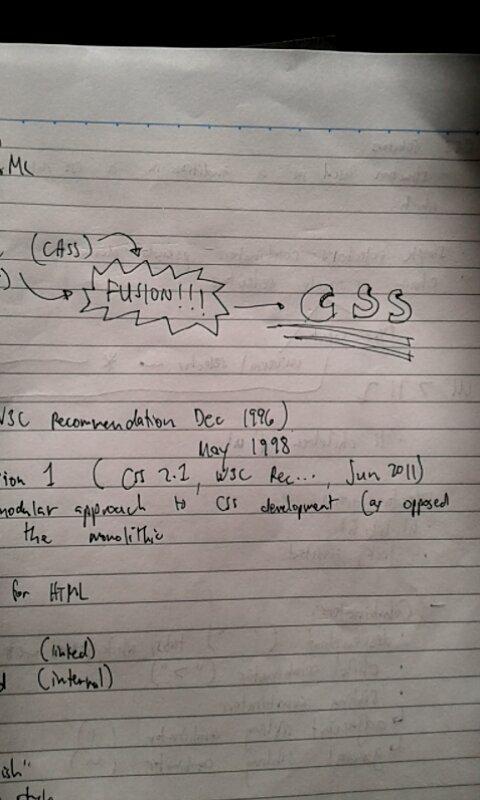 ML
(CASS)
FUSION!!!
CSS
W3C Recommendation Dec 1996)
May 1998
ion 1 (CSS 2.1, W3C Rec..., Jun 2011)
modular approach to CSS development (as opposed
the monolithic
for HTML
(linked)
(internal)
ish"
style